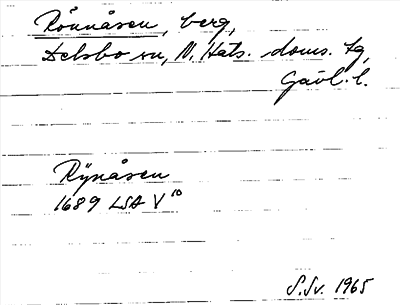 Rönnåsen, berg,
Delsbo sn, N. Häls. doms. tg,
Gävl. l.
Rynåsen
1689 LSA V 10
S.Sv. 1965